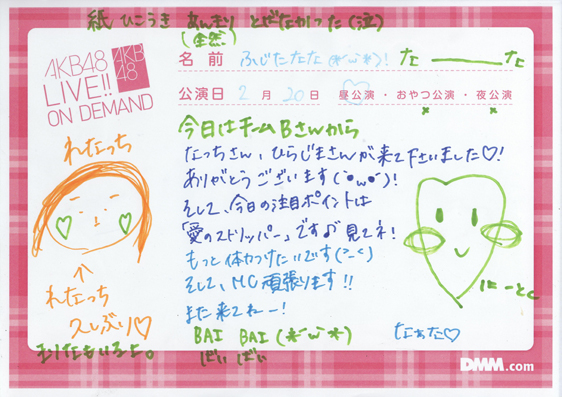 紙ひこうき あんまり とばなかった(泣)
(全然)
AKB48
LIVE!!
ON DEMAND
AKB
48
名前 ふじたなな(*´ω`*)! な ___ な
公演日 2月20日 昼公演・おやつ公演・夜公演
× ×
今日はチームBさんから
なっちさん、ひらじまさんが来て下さいました♡!
ありがとうございます(´•ω•`)!
そして、今日の注目ポイントは
「愛のストリッパー」です♪見てネ!
もっと体力つけたいです(>_<)
そして、MC頑張ります!!
また来てねー!
BAI BAI (*´ω`*)
ばい ばい
れなっち
↑
れなっち
久しぶり♡
まりなもいるよ。
にーと
なぁな♡
DMM.com